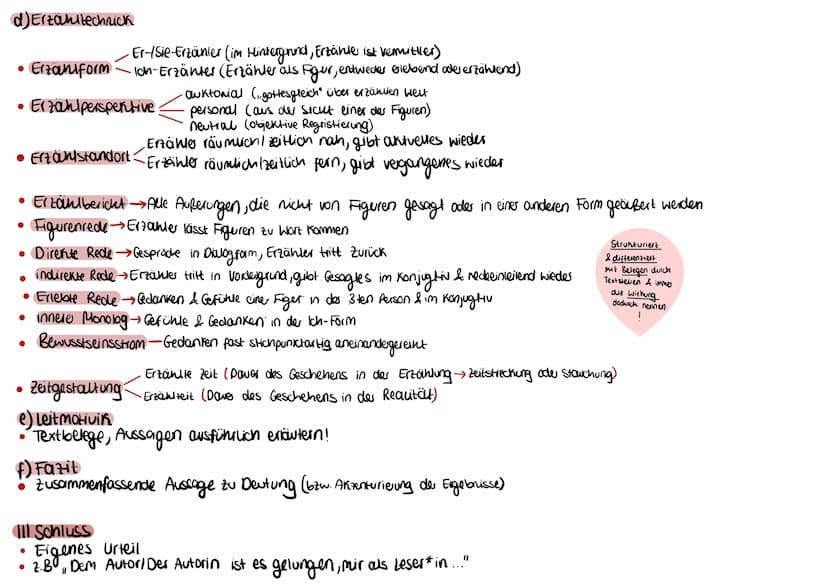 d) Erzähltechnik
• Erzählform
Er-/Sie-Erzähler (im Hintergrund, Erzähler ist Vermittler)
Ich-Erzähler (Erzähler als Figur, entweder erlebend oder erzählend)
• Erzählperspektive
auktorial („gottesgleich" über erzählten Welt
personal (aus der Sicht einer der Figuren)
neutral (objektive Registrierung)
• Erzählstandort
Erzähler räumlich/zeitlich nah, gibt aktuelles wieder
Erzähler räumlich/zeitlich fern, gibt vergangenes wieder
• Erzählbericht → Alle Äußerungen, die nicht von Figuren gesagt oder in einer anderen Form geäußert werden
• Figurenrede → Erzähler lässt Figuren zu Wort kommen
• Direkte Rede → Gespräche in Dialogform, Erzähler tritt zurück
• indirekte Rede → Erzähler tritt in Vordergrund, gibt Gesagtes im Konjuktiv & redeeinleitend wieder
• Erlebte Rede → Gedanken & Gefühle einer Figur in der 3ten Person & im Konjugtiv
• innerer Monolog → Gefühle & Gedanken in der Ich-Form
• Bewusstseinsstrom — Gedanken fast stichpunktartig aneinandergereiht
Strukturiert
& differenziert
mit Belegen durch
Textstellen & immer
die Wirkung
dadurch nennen
!
• Zeitgestaltung
Erzählte Zeit (Dauer des Geschehens in der Erzählung → Zeitstreckung oder Stauchung)
Erzählzeit (Dauer des Geschehens in der Realität)
e) Leitmotivik
• Textbelege, Aussagen ausführlich erläutern!
f) Fazit
• zusammenfassende Aussage zu Deutung (bzw. Akzenturierung der Ergebnisse)
III Schluss
• Eigenes Urteil
• z.B „Dem Autor/Der Autorin ist es gelungen, mir als Leser*in ..."